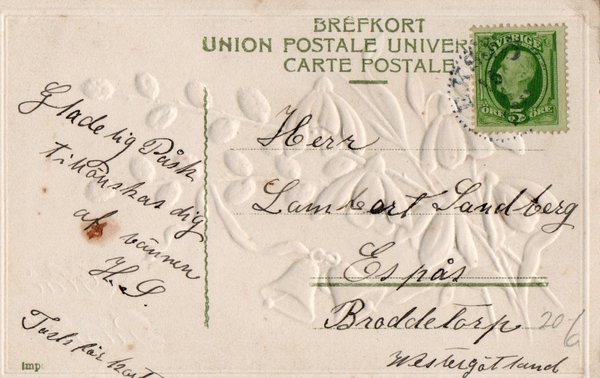 BREFKORT
UNION POSTALE UNIVER
CARTE POSTALE
SVERIGE
5
ÖRE ÖRE
Gladelig Påsk
tillönskas dig
af vännen
H.S.
Herr
Lambert Sandberg
Espås
Broddetorp
Westergötland
20-6
Imp